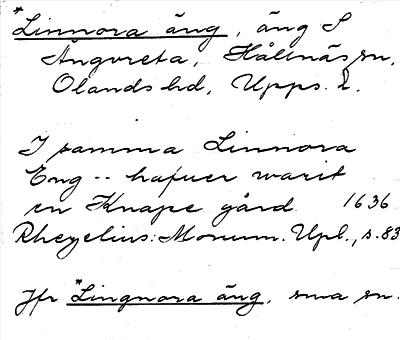 *Linnora äng, äng S
Ängvreta, Hållnäs sn,
Olands hd, Upps. l.
I samma Linnora
Eng -- hafuer warit
en Knape gård. 1636
Rhezelius: Monum. Upl., s. 83
Jfr *Lingnora äng, sma sn.